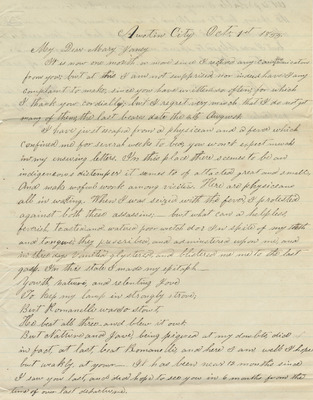 Austin City Oct 1st
My Dear Mary Janey
It is now one month or more since I received any communication
from you, but at this I am not supprised nor indeed have I any
complaint to make, since you have written so often, for which
I thank you cordially; but I regret very much that I do not get
many of them, the last bears date the 25 August
I have just escaped from a physician and a fever which
confined me for several weeks to bed, you wont expect much
in my ensuing letters. In this place there seems to be an
indigenous distemper it seems to of attacted great and small,
And make woful work among victims. Here are physicians
all in waiting. When I was seized with the fever, I protested
against both these assassins — but what can a helpless,
feverish, toasted and watered poor wretch do? In spite of my teeth
and tongue they prescribed, and administered upon me, and
in three days Vomited Glystered, and Blistered me to the last
gasp. In this state I made my epitaph —
Youth, nature, and relenting Jove
To keep my lamp in strongly strove,
But Romanelli was so stout
He beat all three and blew it out
But Nature and Jove, being piqued at my doubts did
in fact, at last, beat Romanelli, and here I am well I hope
but weakly, at yours — It has been near 10 months since
I saw you last, and I had hope to see you in 6 months from the
time of our last departure